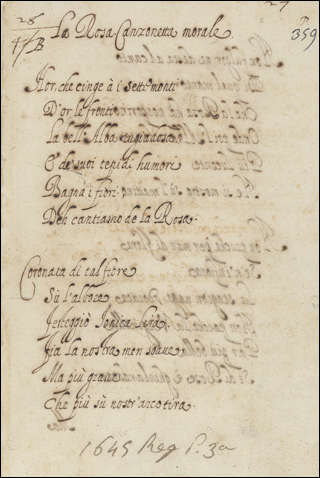 28
4/B
27
359
La Rosa Canzonetta morale
Hor che cinge à i setti monti
D'or le fronti
La bell' Alba rugiadosa
E de' suoi tepidi humori
Bagna i fiori
Deh cantiamo de la Rosa.
Coronata di tal fiore
Sù l'albore
Ionica Lira
Fia la nostra men soave
Ma più grave
Che più sù nostr' arco tira.
1645 Reg P. 3a